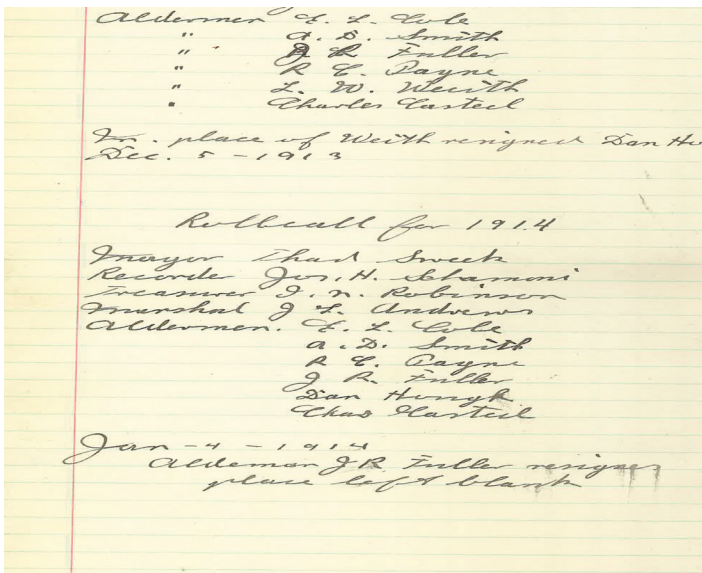 Aldermen E. L. Cole
" A. D. Smith
" J R Fuller
" R E. Payne
" L. W. Weith
" Charles Casteel
In. place of Weith resigned Dan
Dec. 5 - 1913
Rollcall for 1914
Mayor Thad Sweek
Recorder Jos. H. Schamoni
Treasurer J. N. Robinson
Marshal J L. Andrews
Aldermen. E. L. Cole
A. D. Smith
R E. Payne
J R. Fuller
Dan
Chas Casteel
Jan - 4 - 1914
Aldeman J R Fuller resignes
place left blank